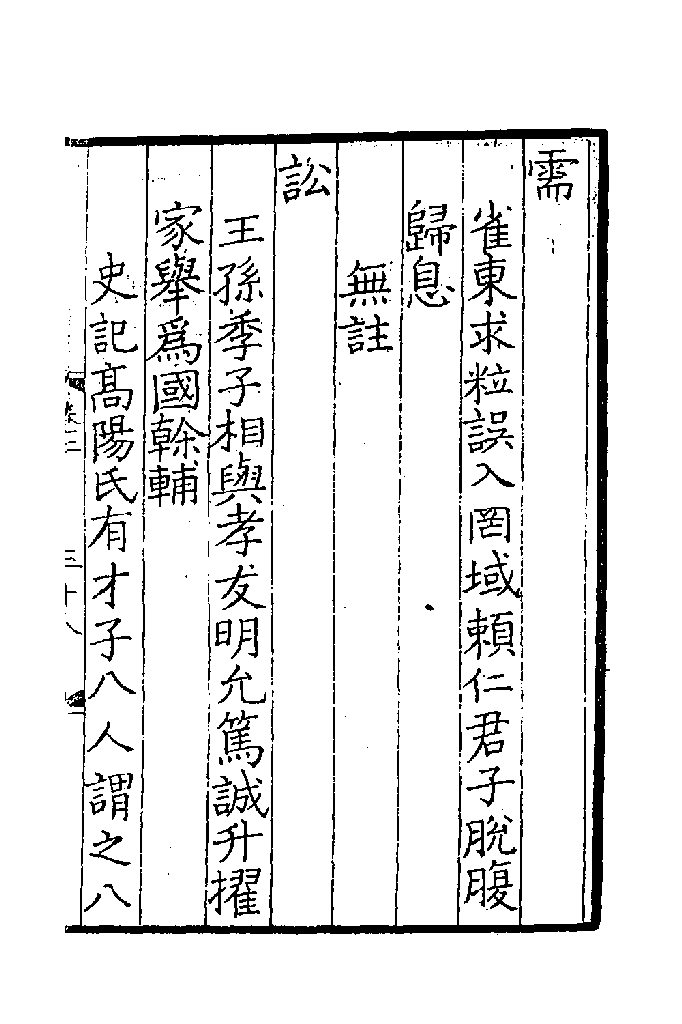 需
雀東求粒誤入罔域頼仁君子脫腹
歸息
無註
訟
王孫季子相與孝友明允篤誠升擢
家舉爲國榦輔
史記髙陽氏有才子八人謂之八
卷三
三十八